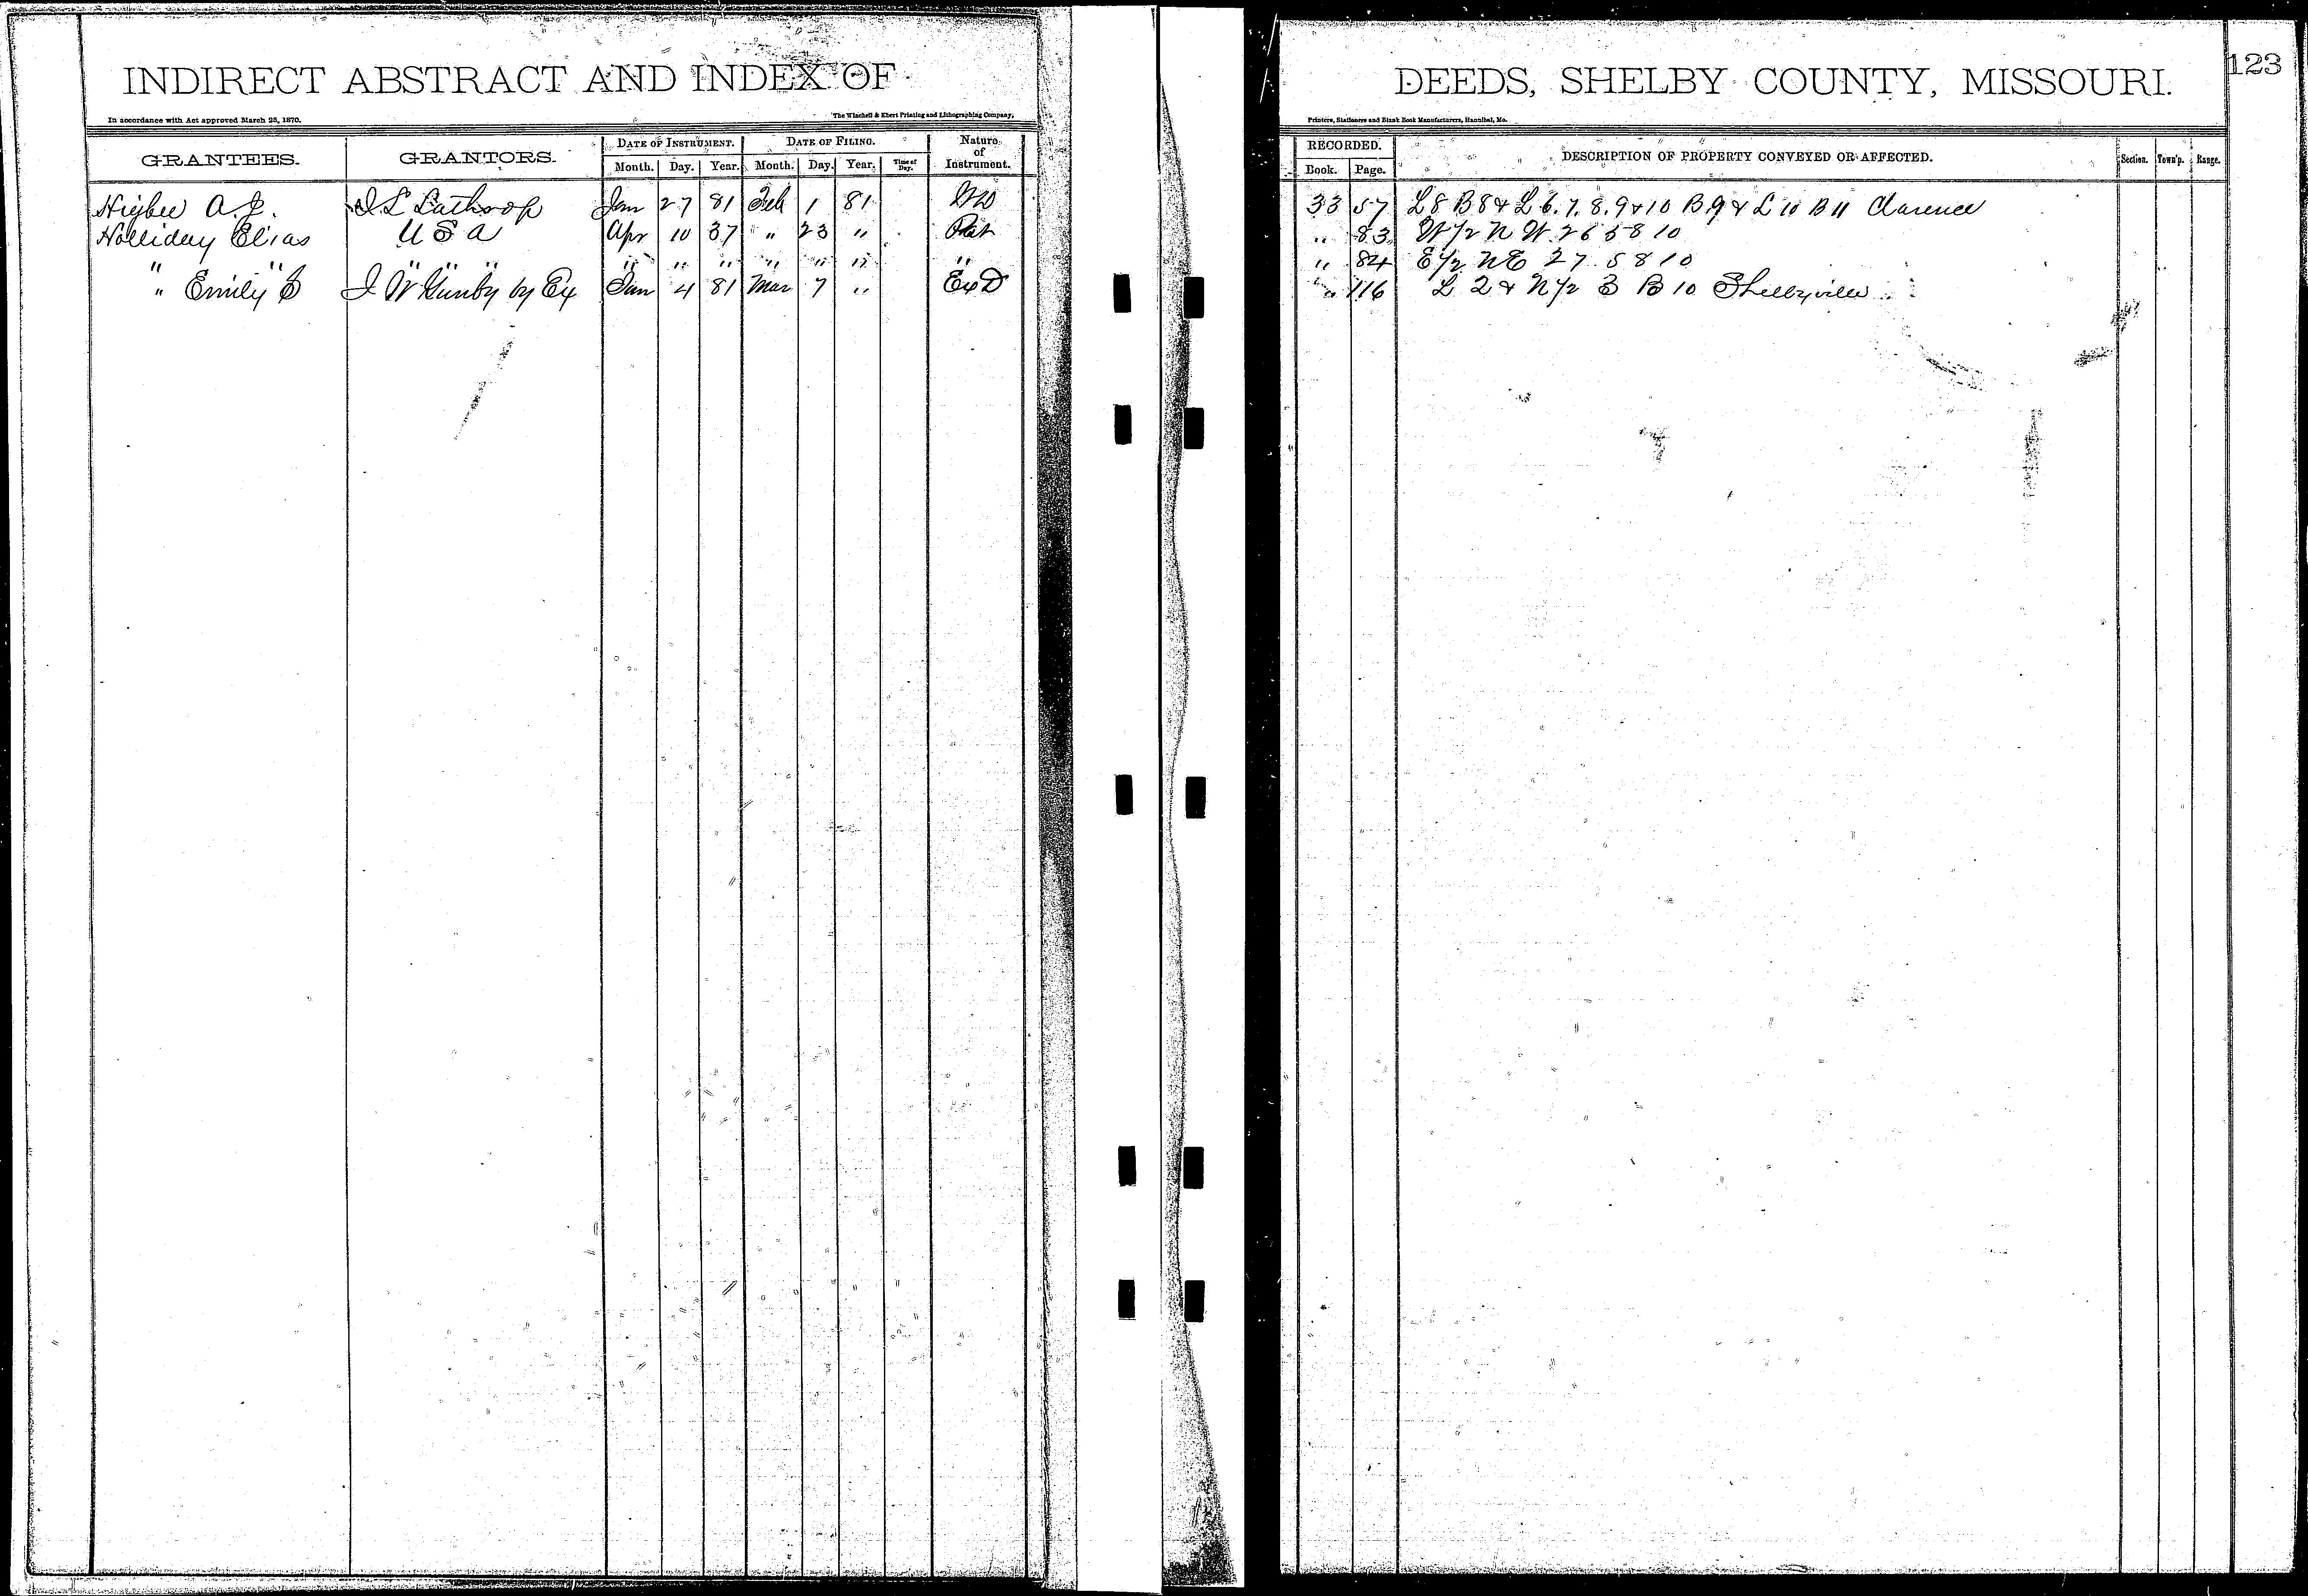 INDIRECT ABSTRACT AND INDEX OF DEEDS, SHELBY COUNTY, MISSOURI. 123
In accordance with Act approved March 25, 1870. The Winchell & Ebert Printing and Lithographing Company, Printers, Stationers and Blank Book Manufacturers, Hannibal, Mo.
GRANTEES. GRANTORS. DATE OF INSTRUMENT. DATE OF FILING. Nature of Instrument. RECORDED. DESCRIPTION OF PROPERTY CONVEYED OR AFFECTED. Section. Town'p. Range.
Month. Day. Year. Month. Day. Year. Time of Day. Book. Page.
Higbee A. J. Lathrop Jan 27 81 Feb 1 81 WD 33 57 L 8 B 8 & L 6. 7. 8. 9 & 10 B 9 & L 10 B 11 Clarence
Holliday Elias U S A Apr 10 37 " 23 " Pat " 83 W 1/2 N W. 26 58 10
" " " " " " " " " " " " " 84 E 1/2 NE 27 58 10
" Emily J W Gunby by Ex Jan 4 81 Mar 7 " Ex D " 116 L 2 & N 1/2 3 B 10 Shelbyville